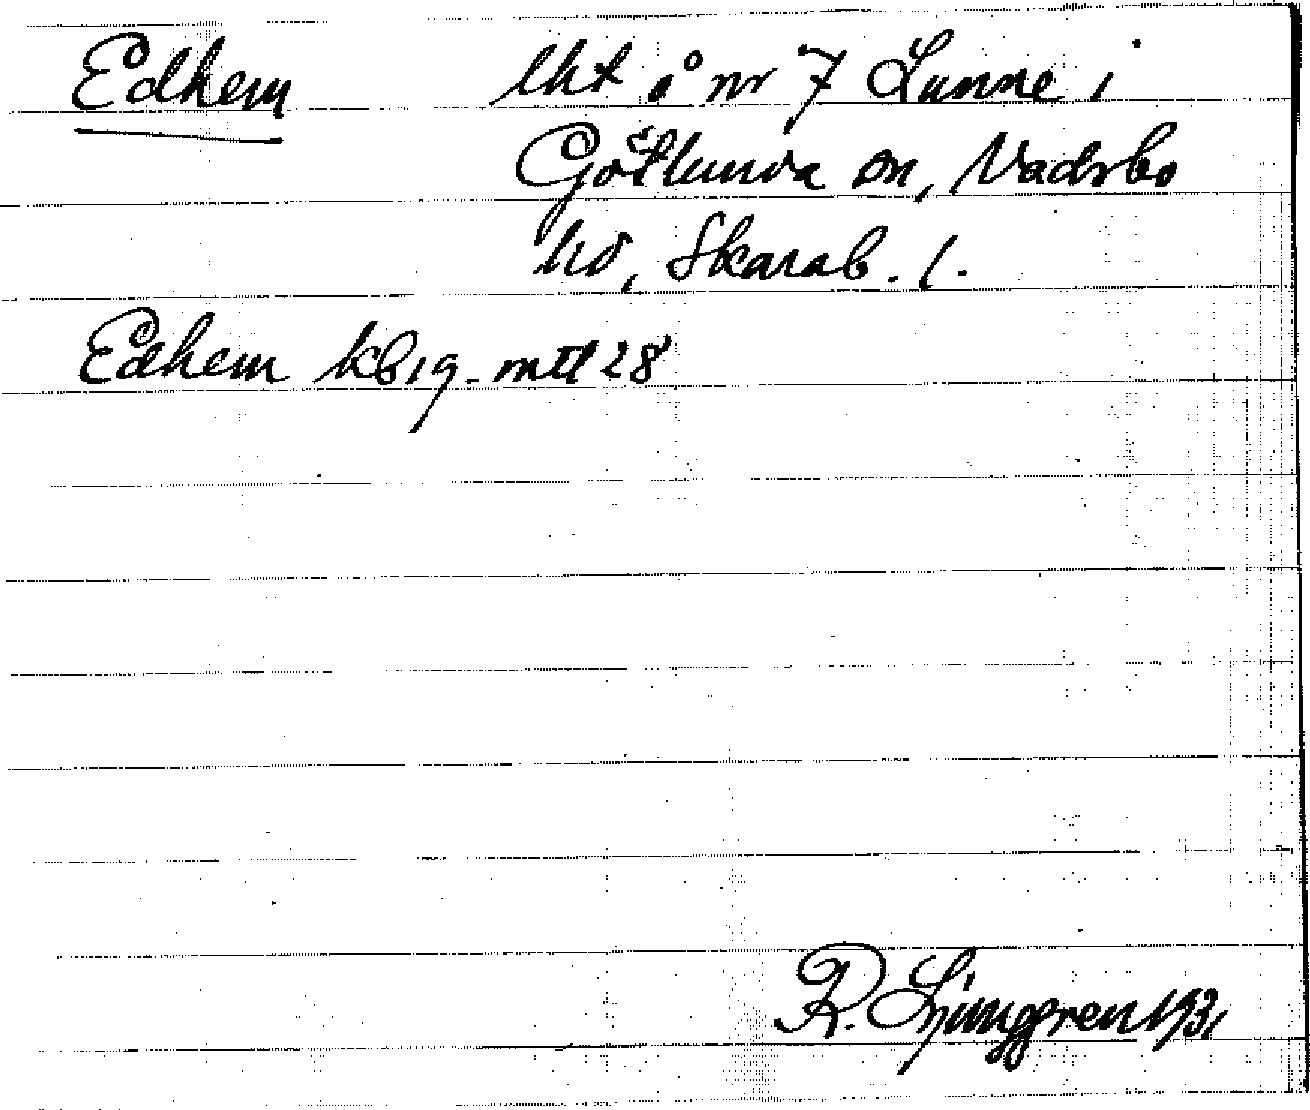 Edhem lht å nr 7 Lunne i
Götlunda sn, Vadsbo
hd, Skarab. l.
Edhem kb 19. mtl 28
R. Ljunggren 1931